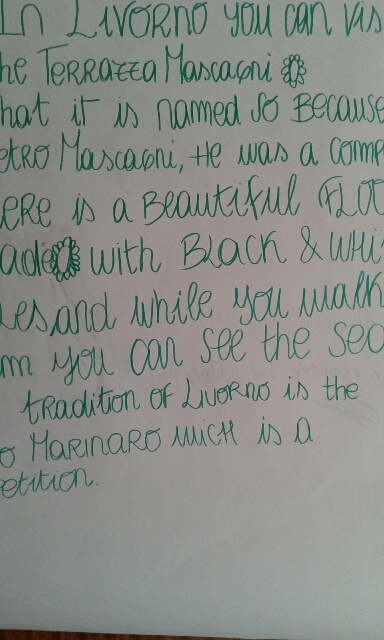 In Livorno you can vis
he Terrazza Mascagni
hat it is named so because
etro Mascagni, He was a comp
ere is a beautiful floo
ade with Black & whi
les, and while you walk
m you can see the sea
tradition of Livorno is the
o Marinaro wich is a
etition.